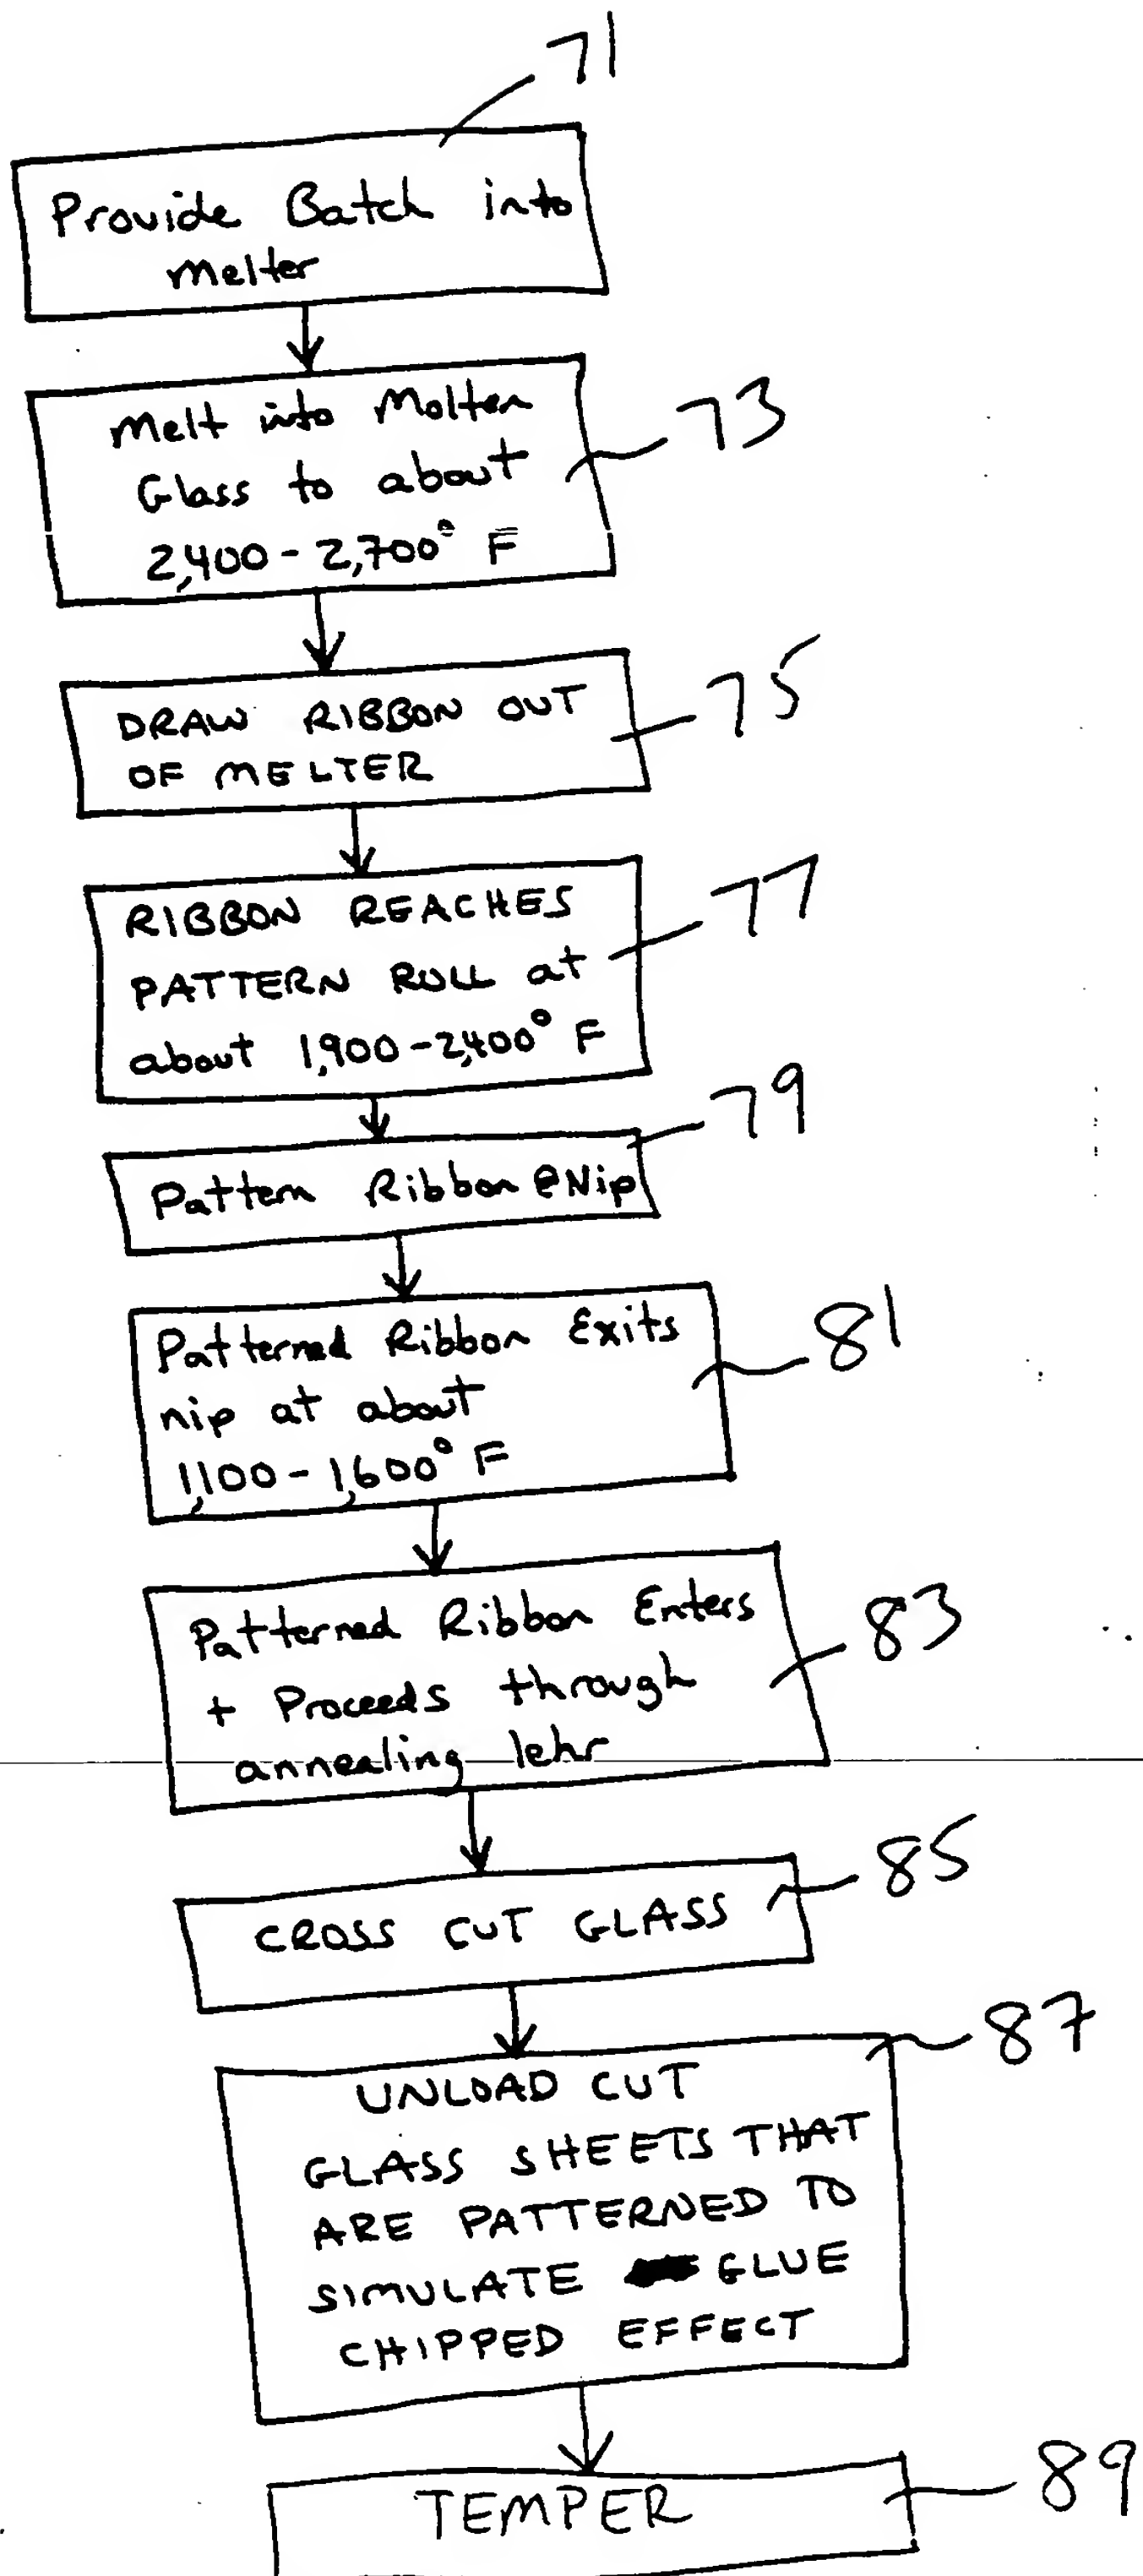 71
Provide Batch into
melter
melt into Molten
Glass to about
2,400-2,700° F
73
DRAW RIBBON OUT
OF MELTER
75
RIBBON REACHES
PATTERN ROLL at
about 1,900-2,400° F
77
Pattern Ribbon @ Nip
79
Patterned Ribbon Exits
nip at about
1,100-1,600° F
81
Patterned Ribbon Enters
+ Proceeds through
annealing lehr
83
CROSS CUT GLASS
85
UNLOAD CUT
GLASS SHEETS THAT
ARE PATTERNED TO
SIMULATE GLUE
CHIPPED EFFECT
87
TEMPER
89